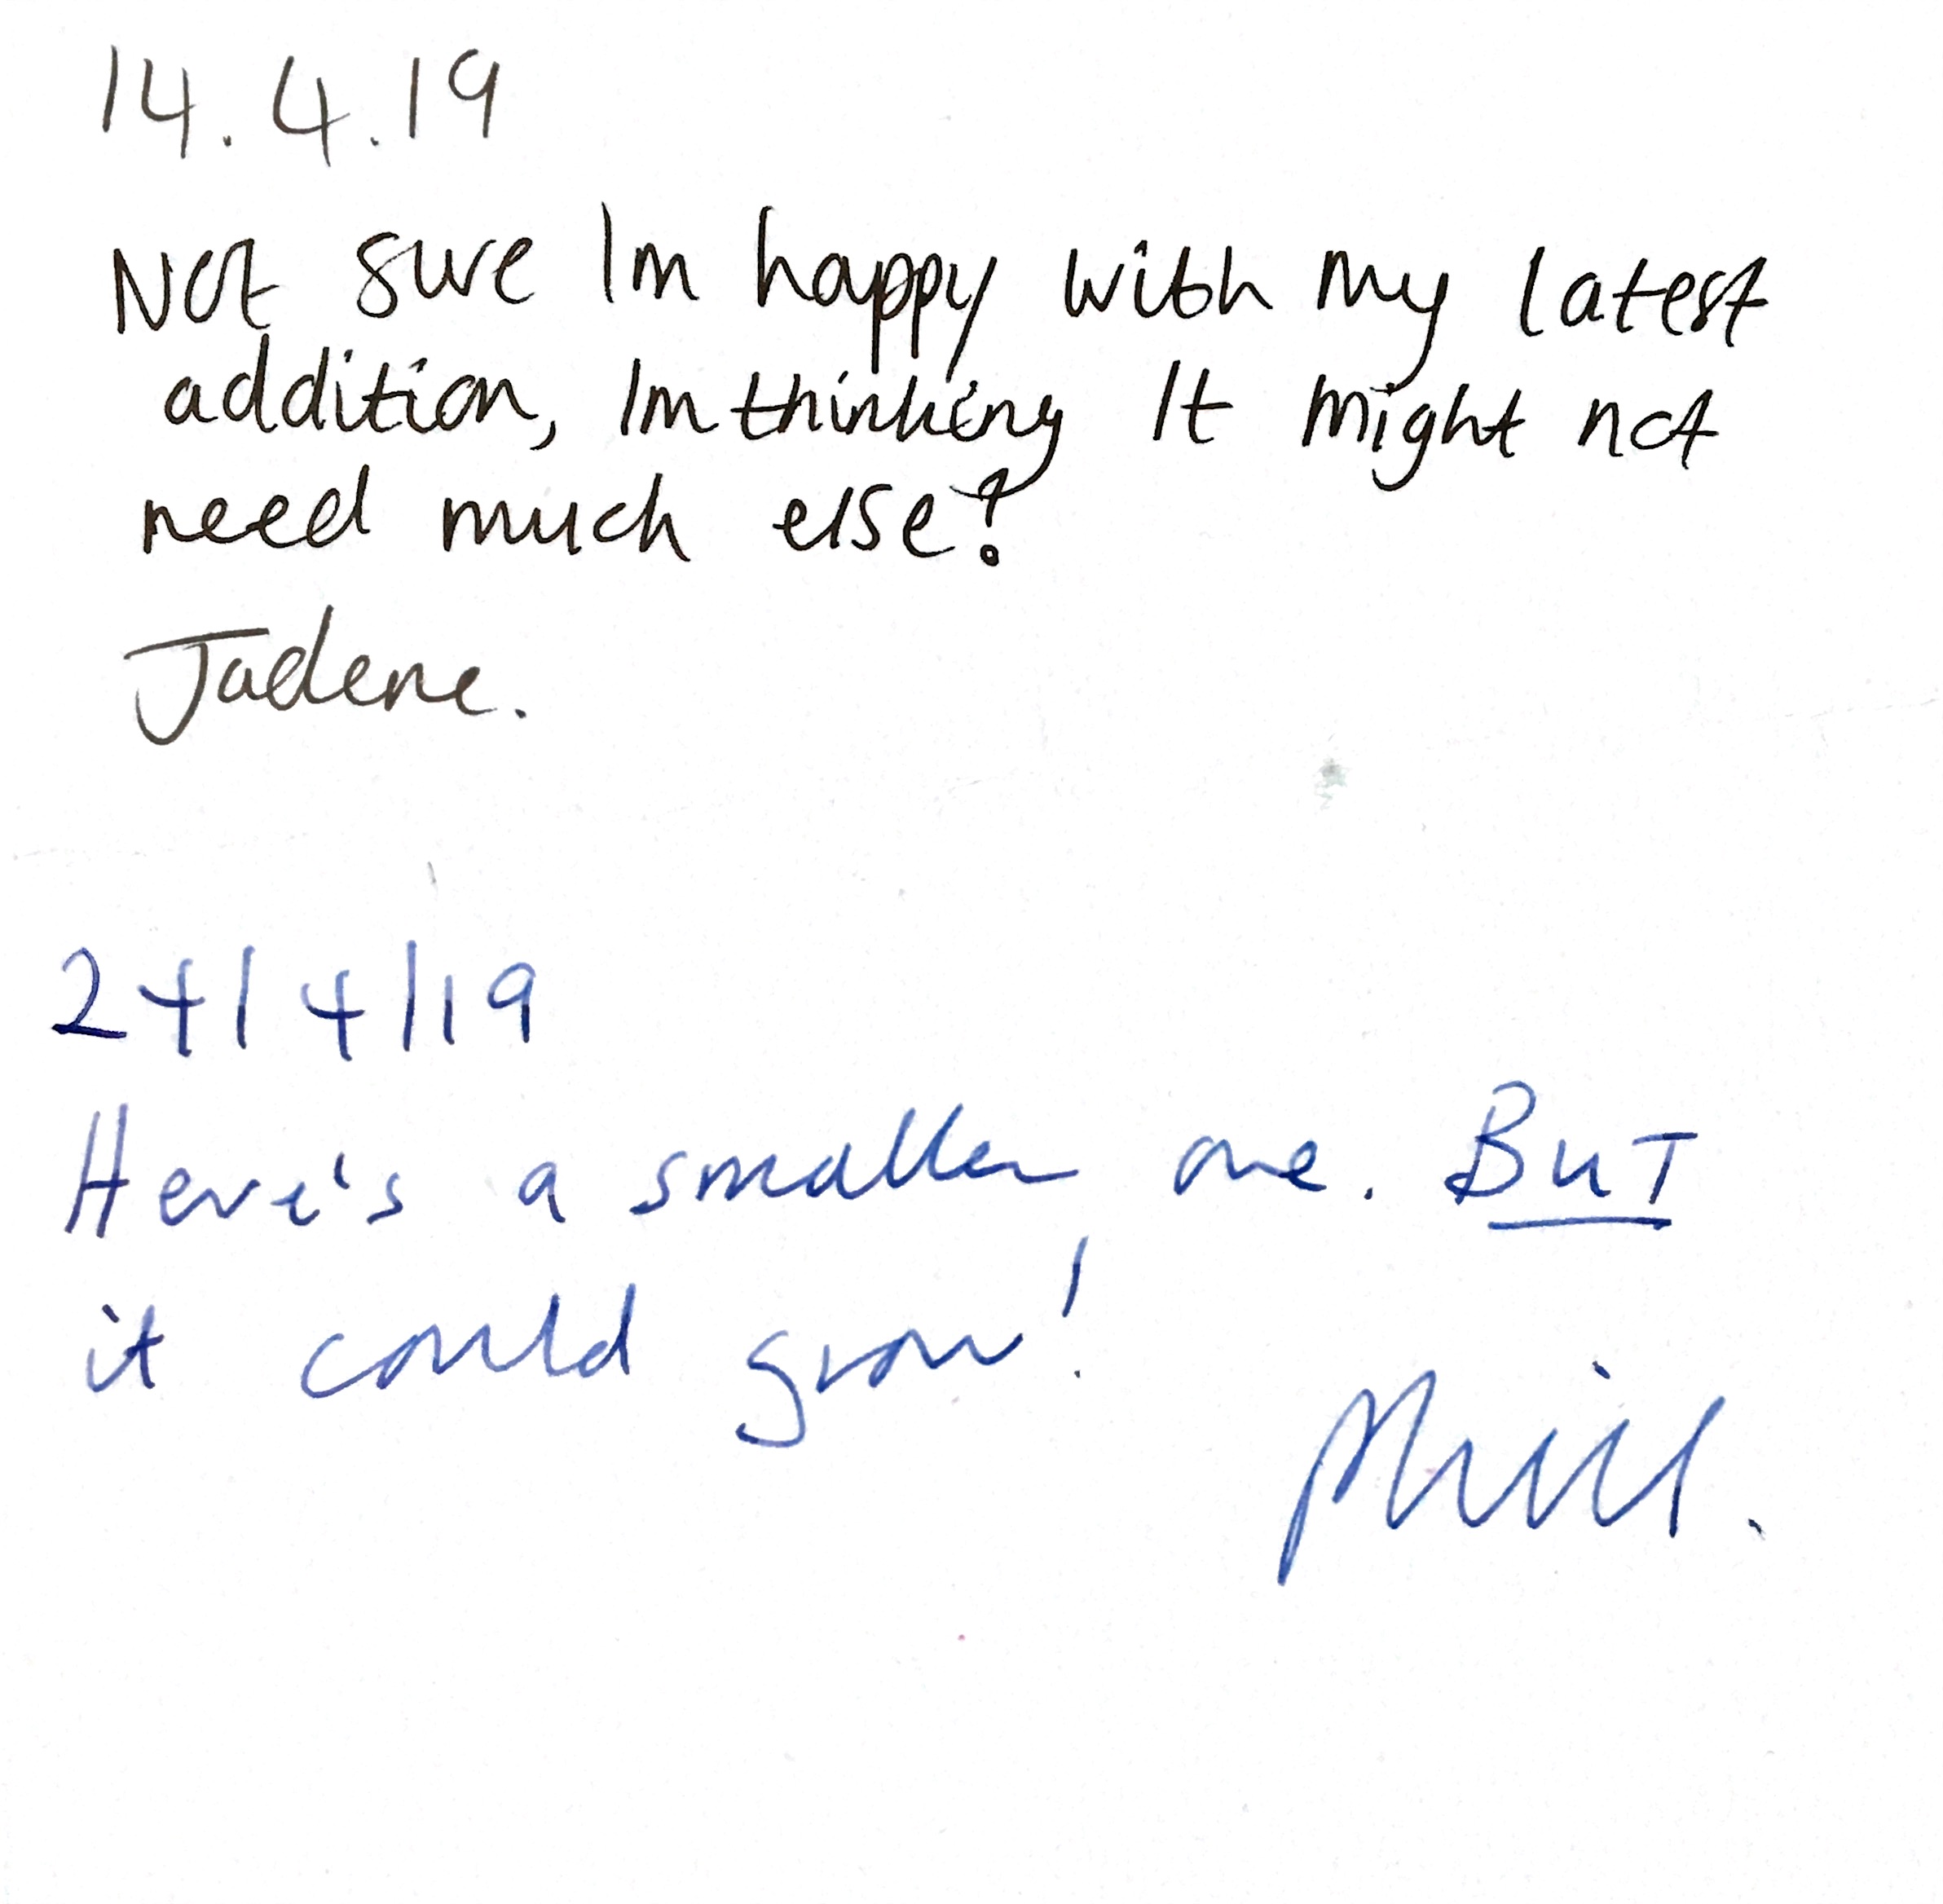 14.4.19
Not sure Im happy with my latest
addition, Im thinking It might not
need much else?
Jadene.
24/4/19
Here's a smaller one. BUT
it could grow!
Phill.